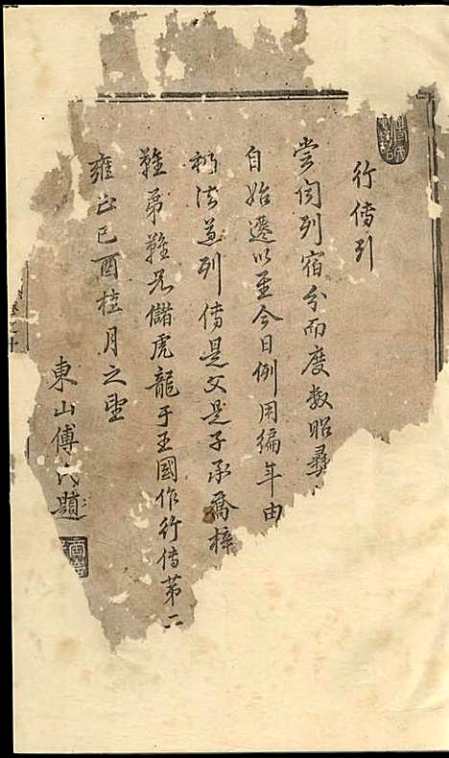 行傳引
嘗閱列宿分而度數昭彝
自始遷以至今日例用編年由
法並列傳是父是子承喬梓
難弟難兄儲虎龍于王國作行傳第二
雍正己酉桂月之望
東山傅氏題